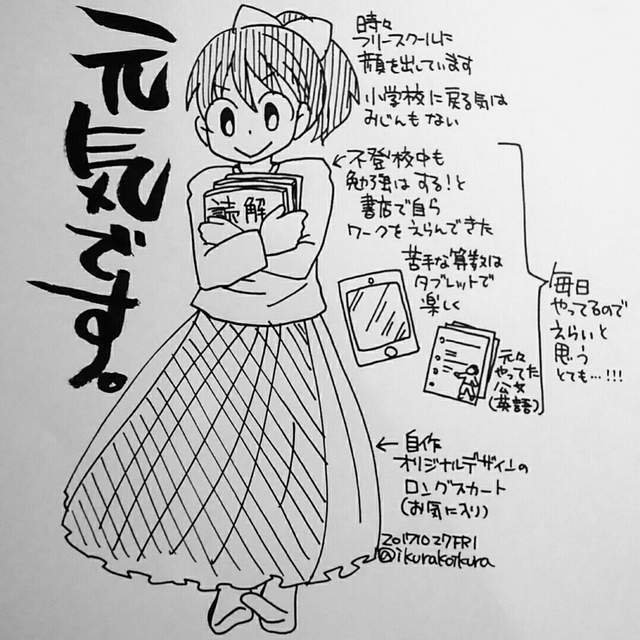 元気です。
時々
フリースクールに
顔を出しています
小学校に戻る気は
みじんもない
←不登校中も
勉強はする!と
書店で自ら
ワークをえらんできた
読解
苦手な算数は
タブレットで
楽しく
元々
やってた
公文
(英語)
毎日
やってるので
えらいと
思う
とても…!!!
←自作
オリジナルデザインの
ロングスカート
(お気に入り)
20171027FRI
@ikurakoikura